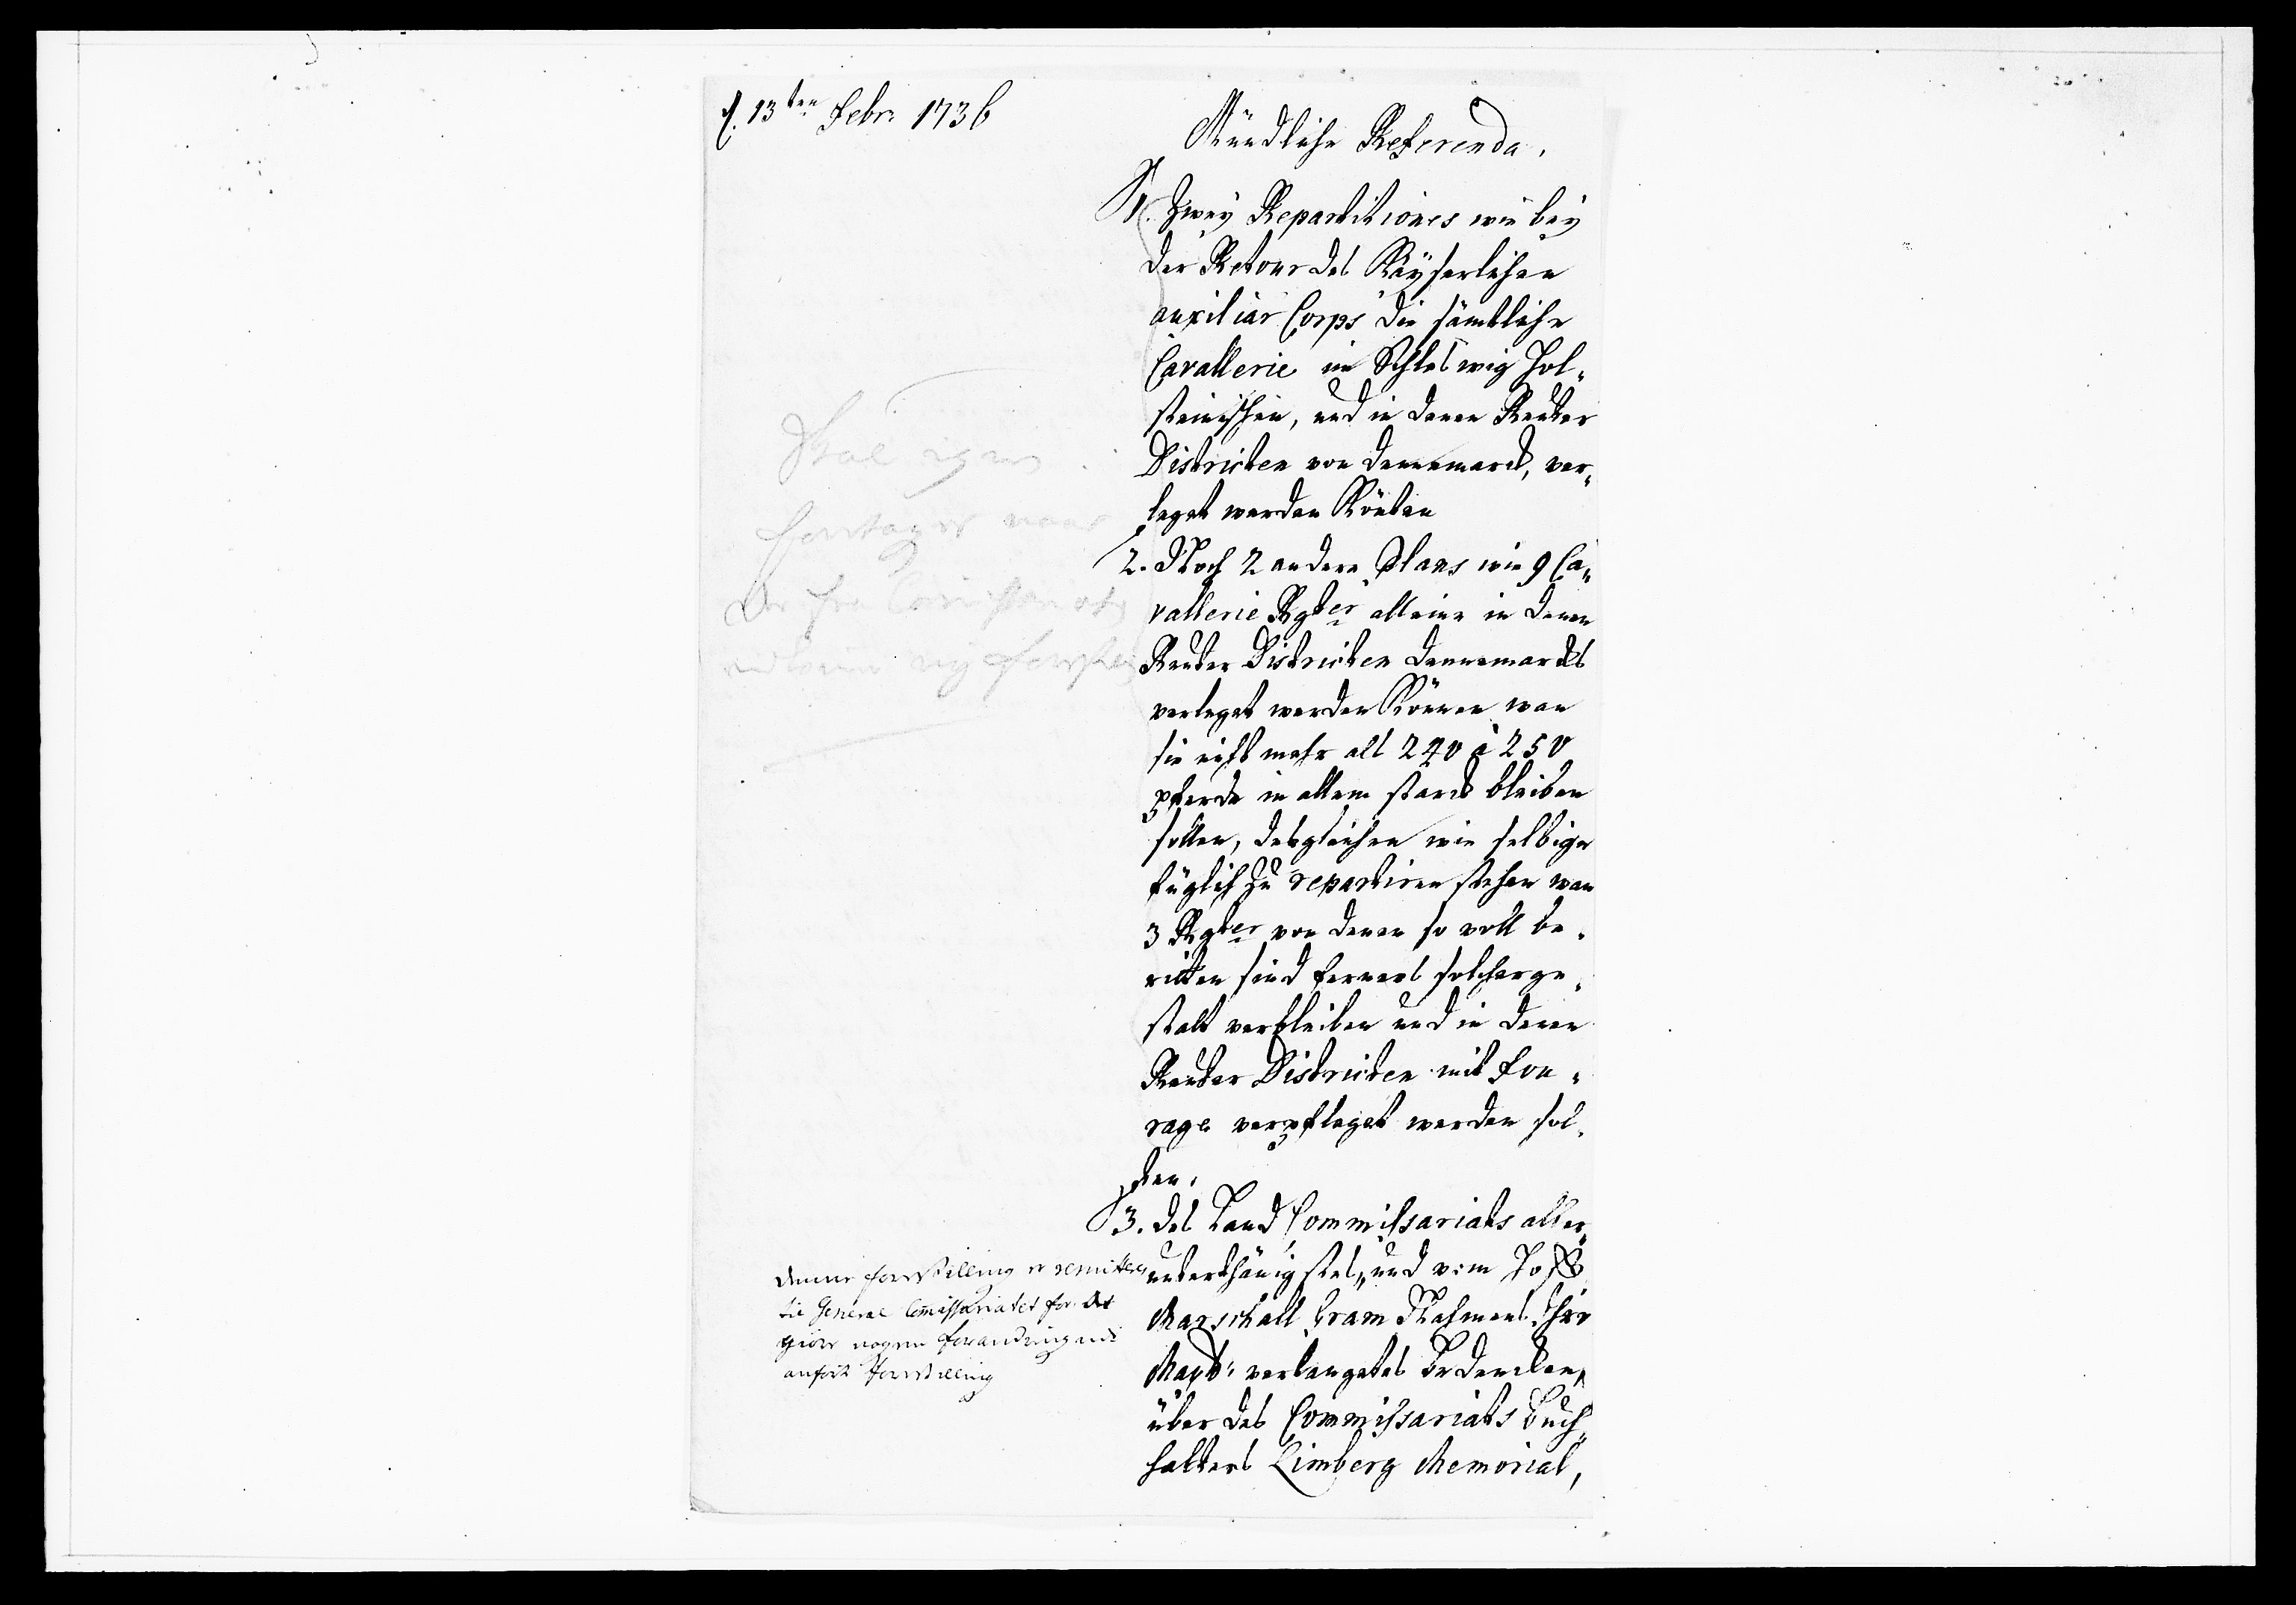 d. 13ten Febr: 1736
Mündliche Referenda.
1. Zweÿ Repartitiones wie beÿ
der Retour des Käÿserlichen
auxiliar Corps die sämtliche
Cavallerie im Schleswig Hol„
steinischen, und in denen Reuter
Districten von Dennemarck, ver„
leget werden könten
2. Noch 2 andere Plans wie 9 Ca„
vallerie Rgter alleine in denen
Reuter Districten Dennemarcks
verleget werden können wan
sie nicht mehr als 240 à 250
Pferde in allem starck bleiben
sollen, desgleichen wie selbige
füglich zu repartiren stehen wan
3 Rgter von denen so voll be„
ritten sind ferners solcherge„
stalt verbleiben und in denen
Reuter Districten mit Fou„
rage verpfleget werden sol„
ten.
3. Des Land Commissariats aller„
unterthänigstes, und vom Hoff
Marschall Gram Nahmens Ihro
Maytt: verlangetes Bedencken,
über des Commissariats Buch„
halters Limberg Memorial,
Skal igien
foretages naar
fra Commissariatz
forestilling
denne forestilling er remitteret
til General Commissariatet for at
giöre nogen forandring udi
anfört forestilling